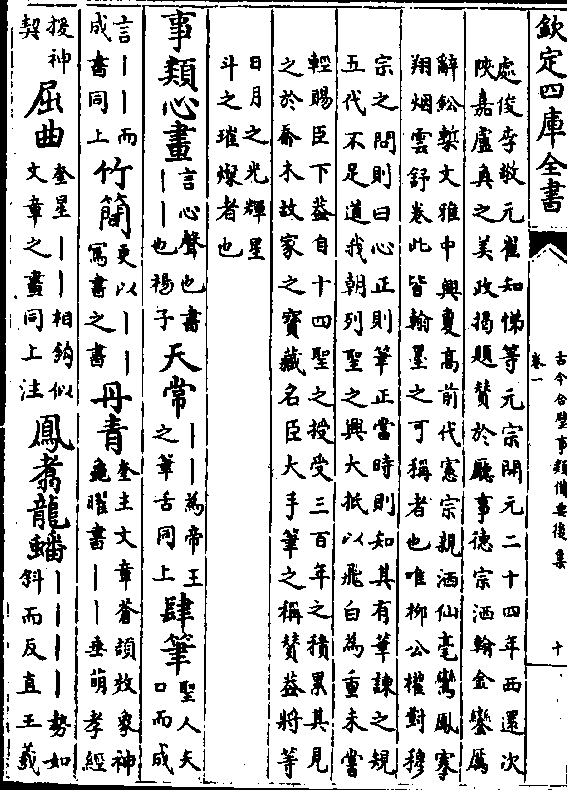 欽定四庫全書
古今合璧事類備要後集
卷一
十
處俊李敬元崔知悌等元宗開元二十四年西還次
陜嘉盧奐之美政揭題賛於廳事德宗洒翰金鑾属
辭鉛槧文雅中興夐高前代憲宗親洒仙毫鸞鳳騫
翔烟雲舒卷此皆翰墨之可稱者也唯柳公權對穆
宗之問則曰心正則筆正當時則知其有筆諫之規
五代不足道我朝列聖之興大抵以飛白為重未嘗
輕賜臣下葢自十四聖之授受三百年之積累其見
之於喬木故家之寳藏名臣大手筆之稱賛葢將等
日月之光輝星
斗之璀燦者也
事類心畫言心聲也書
――也楊子天常――為帝王
之筆舌同上肆筆聖人矢
口而成
言――而
成書同上竹簡更以――
寫書之書丹青奎主文章蒼頡效象神
龜曜書――垂萌孝經
援神
契屈曲奎星――相鈎似
文章之畫同上注鳳翥龍蟠――――勢如
斜而反直王羲